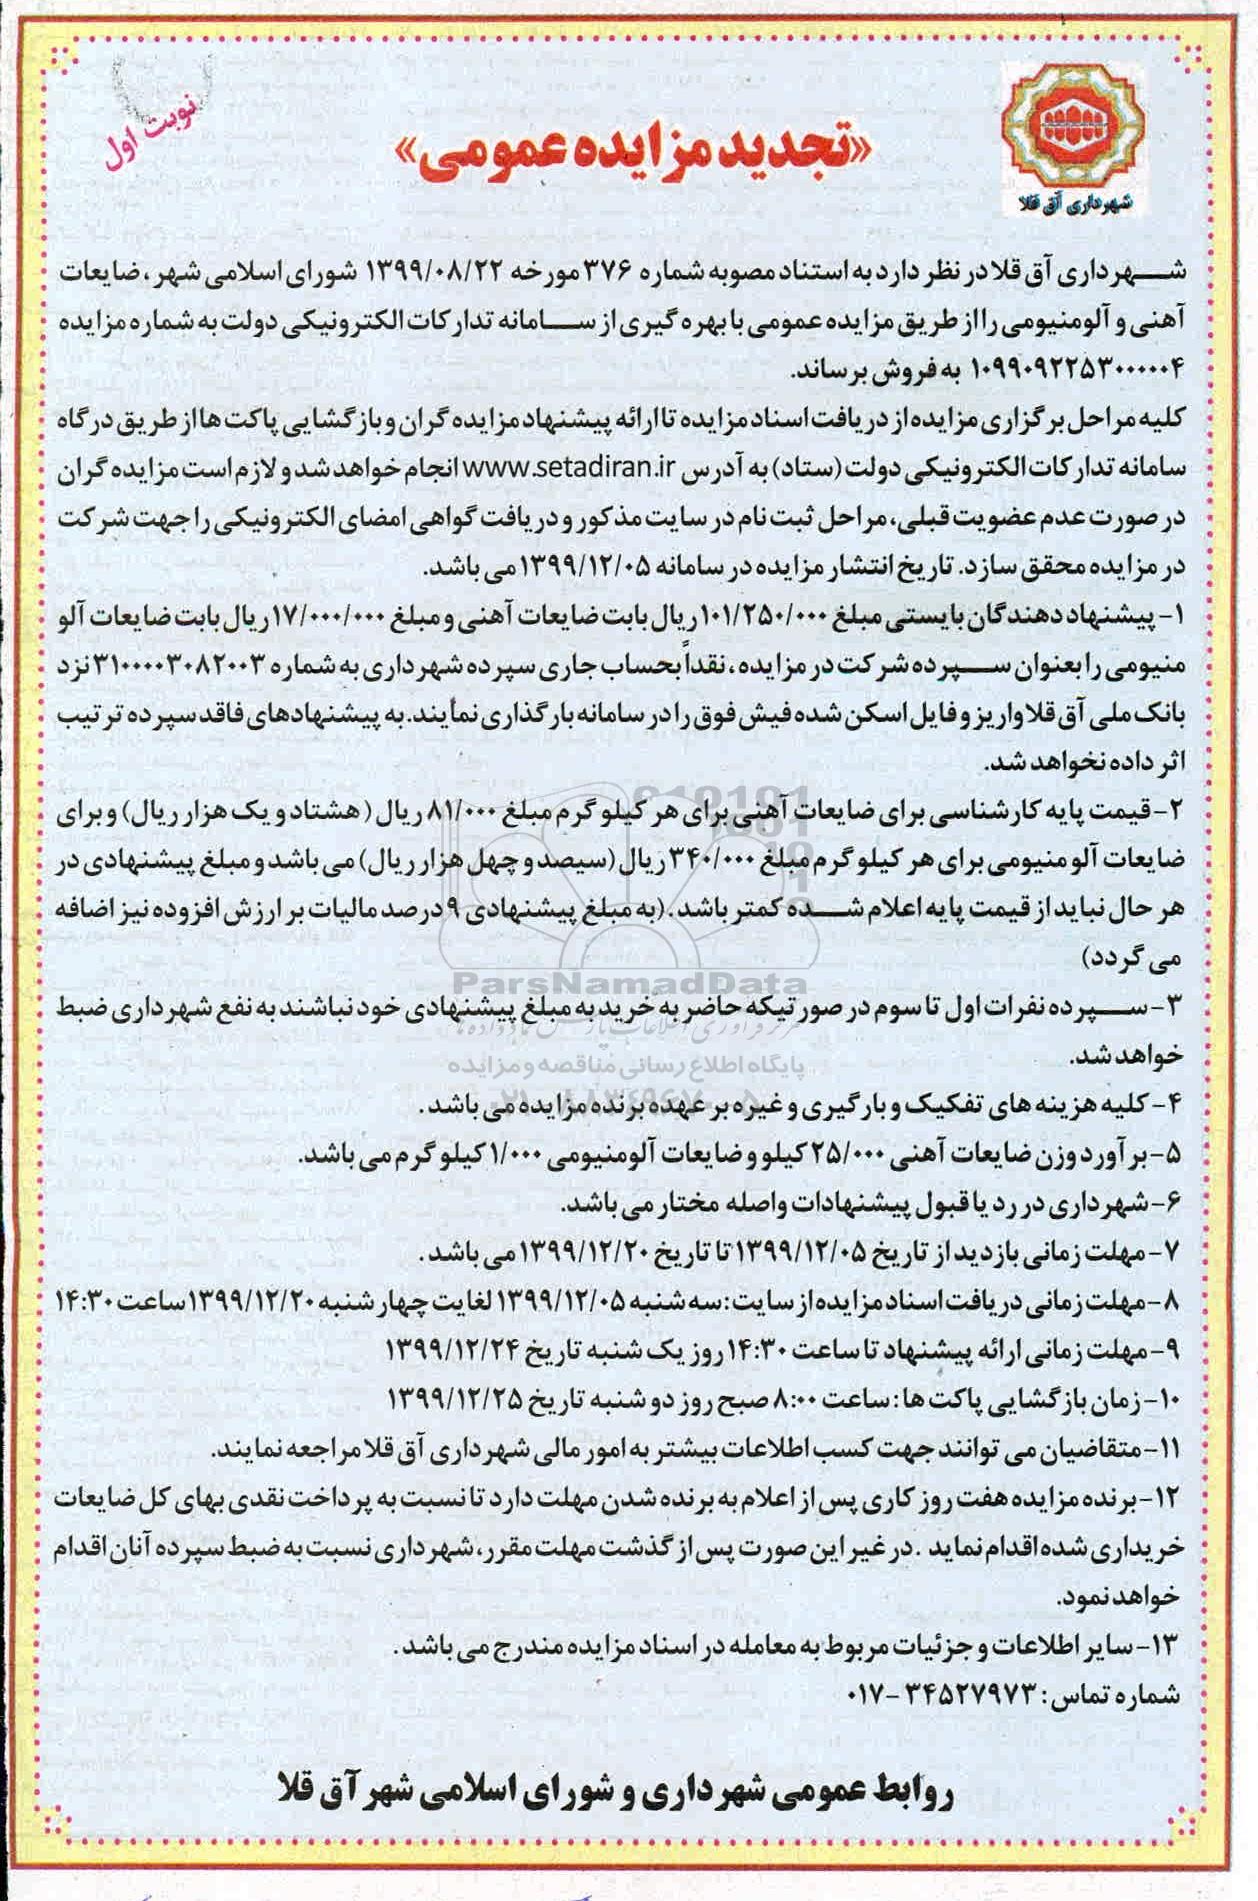 نوبت اول
«تجدید مزایده عمومی»
شهرداری آق قلا
شهرداری آق قلا در نظر دارد به استناد مصوبه شماره ۳۷۶ مورخه ۱۳۹۹/۰۸/۲۲ شورای اسلامی شهر، ضایعات
آهنی و آلومنیومی را از طریق مزایده عمومی با بهره گیری از سامانه تدارکات الکترونیکی دولت به شماره مزایده
۱۰۹۹۰۹۲۲۵۳۰۰۰۰۰۴ به فروش برساند.
کلیه مراحل برگزاری مزایده از دریافت اسناد مزایده تا ارائه پیشنهاد مزایده گران و بازگشایی پاکت ها از طریق درگاه
سامانه تدارکات الکترونیکی دولت (ستاد) به آدرس www.setadiran.ir انجام خواهد شد و لازم است مزایده گران
در صورت عدم عضویت قبلی، مراحل ثبت نام در سایت مذکور و دریافت گواهی امضای الکترونیکی را جهت شرکت
در مزایده محقق سازد. تاریخ انتشار مزایده در سامانه ۱۳۹۹/۱۲/۰۵ می باشد.
۱- پیشنهاد دهندگان بایستی مبلغ ۱۰۱/۲۵۰/۰۰۰ ریال بابت ضایعات آهنی و مبلغ ۱۷/۰۰۰/۰۰۰ ریال بابت ضایعات آلو
منیومی را بعنوان سپرده شرکت در مزایده، نقداً بحساب جاری سپرده شهرداری به شماره ۳۱۰۰۰۰۳۰۸۲۰۰۳ نزد
بانک ملی آق قلا واریز و فایل اسکن شده فیش فوق را در سامانه بارگذاری نمایند. به پیشنهادهای فاقد سپرده ترتیب
اثر داده نخواهد شد.
۲- قیمت پایه کارشناسی برای ضایعات آهنی برای هر کیلوگرم مبلغ ۸۱/۰۰۰ ریال (هشتاد و یک هزار ریال) و برای
ضایعات آلومنیومی برای هر کیلوگرم مبلغ ۳۴۰/۰۰۰ ریال (سیصد و چهل هزار ریال) می باشد و مبلغ پیشنهادی در
هر حال نباید از قیمت پایه اعلام شده کمتر باشد. (به مبلغ پیشنهادی ۹ درصد مالیات بر ارزش افزوده نیز اضافه
می گردد)
ParsNamadData
۳- سپرده نفرات اول تا سوم در صورتیکه حاضر به خرید به مبلغ پیشنهادی خود نباشند به نفع شهرداری ضبط
خواهد شد.
پایگاه اطلاع رسانی مناقصه و مزایده
۴- کلیه هزینه های تفکیک و بارگیری و غیره بر عهده برنده مزایده می باشد.
۵- برآورد وزن ضایعات آهنی ۲۵/۰۰۰ کیلو و ضایعات آلومنیومی ۱/۰۰۰ کیلوگرم می باشد.
۶- شهرداری در رد یا قبول پیشنهادات واصله مختار می باشد.
۷- مهلت زمانی بازدید از تاریخ ۱۳۹۹/۱۲/۰۵ تا تاریخ ۱۳۹۹/۱۲/۲۰ می باشد.
۸- مهلت زمانی دریافت اسناد مزایده از سایت: سه شنبه ۱۳۹۹/۱۲/۰۵ لغایت چهارشنبه ۱۳۹۹/۱۲/۲۰ ساعت ۱۴:۳۰
۹- مهلت زمانی ارائه پیشنهاد تا ساعت ۱۴:۳۰ روز یک شنبه تاریخ ۱۳۹۹/۱۲/۲۴
۱۰- زمان بازگشایی پاکت ها: ساعت ۸:۰۰ صبح روز دو شنبه تاریخ ۱۳۹۹/۱۲/۲۵
۱۱- متقاضیان می توانند جهت کسب اطلاعات بیشتر به امور مالی شهرداری آق قلا مراجعه نمایند.
۱۲- برنده مزایده هفت روز کاری پس از اعلام به برنده شدن مهلت دارد تا نسبت به پرداخت نقدی بهای کل ضایعات
خریداری شده اقدام نماید. در غیر این صورت پس از گذشت مهلت مقرر، شهرداری نسبت به ضبط سپرده آنان اقدام
خواهد نمود.
۱۳- سایر اطلاعات و جزئیات مربوط به معامله در اسناد مزایده مندرج می باشد.
شماره تماس: ۳۴۵۲۷۹۷۳ -۰۱۷
روابط عمومی شهرداری و شورای اسلامی شهر آق قلا